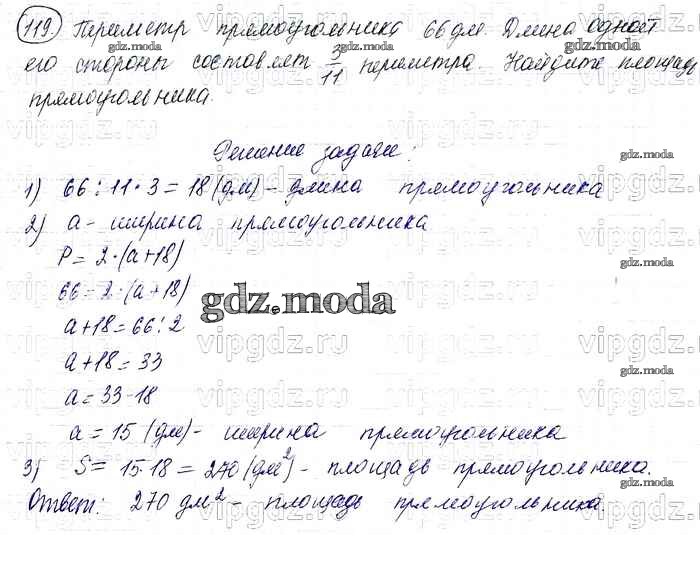 119. Периметр прямоугольника 66 дм. Длина одной
его стороны составляет 3/11 периметра. Найдите площадь
прямоугольника.
Решение задачи:
1) 66 : 11 · 3 = 18 (дм) - длина прямоугольника
2) а - ширина прямоугольника
P = 2 · (а + 18)
66 = 2 · (а + 18)
а + 18 = 66 : 2
а + 18 = 33
а = 33 - 18
а = 15 (дм) - ширина прямоугольника
3) S = 15 · 18 = 270 (дм²) - площадь прямоугольника.
Ответ: 270 дм² - площадь прямоугольника.
gdz.moda
vipgdz.ru